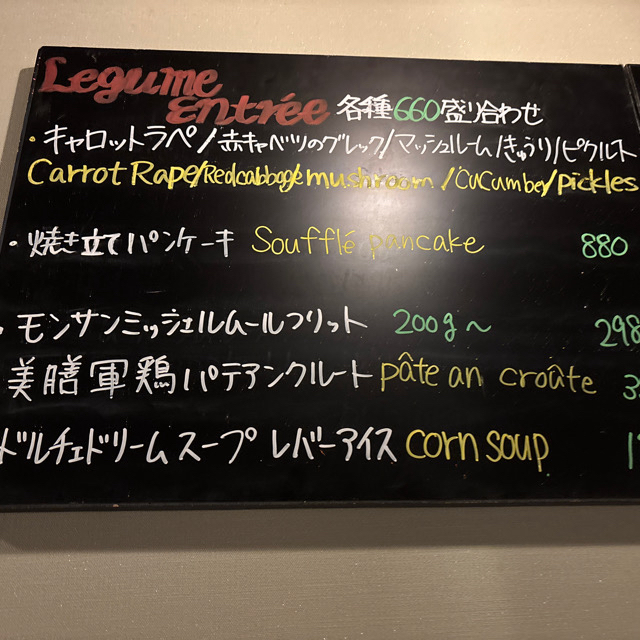 Legume
entrée 各種660盛り合わせ
・キャロットラペ/赤キャベツのグレック/マッシュルーム/きゅうり/ピクルト
Carrot Rape/Redcabbage/mushroom/CuCumber/pickles
・焼き立てパンケーキ Soufflé pancake 880
モンサンミッシェルムールフリット 200g〜 298
美膳軍鶏パテアンクルート pâte an croâte 3
ドルチェドリームスープ レバーアイス corn soup 1